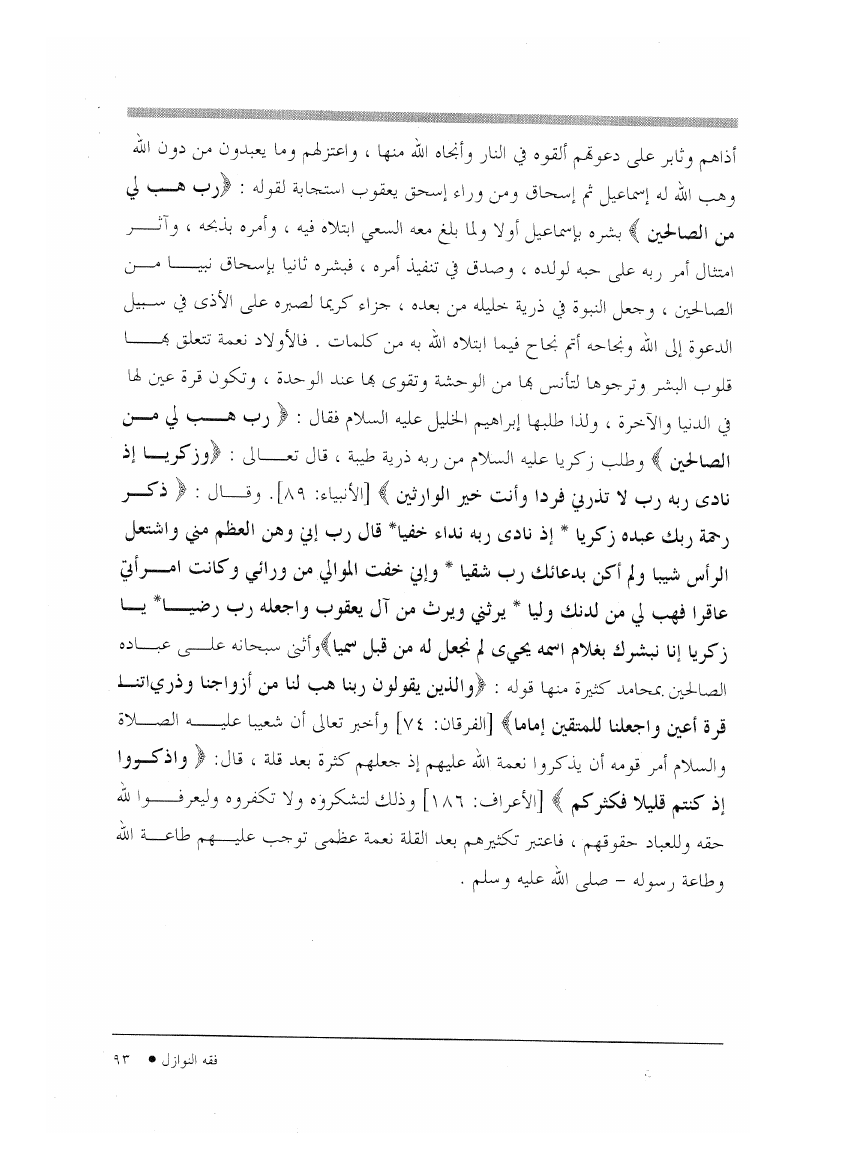 أذاهم وثابر على دعوتهم ألقوه في النار وأنجاه الله منها ، واعتزلهم وما يعبدون من دون الله
وهب الله له إسماعيل ثم إسحاق ومن وراء إسحق يعقوب استجابة لقوله : ﴿رب هب لي
من الصالحين ﴾ بشره بإسماعيل أولا ولما بلغ معه السعي ابتلاه فيه ، وأمره بذبحه ، وآثر
امتثال أمر ربه على حبه لولده ، وصدق في تنفيذ أمره ، فبشره ثانيا بإسحاق نبيا من
الصالحين ، وجعل النبوة في ذرية خليله من بعده ، جزاء كريما لصبره على الأذى في سبيل
الدعوة إلى الله ونجاحه أتم نجاح فيما ابتلاه الله به من كلمات . فالأولاد نعمة تتعلق بها
قلوب البشر وترجوها لتأنس بها من الوحشة وتقوى بها عند الوحدة ، وتكون قرة عين لها
في الدنيا والآخرة ، ولذا طلبها إبراهيم الخليل عليه السلام فقال : ﴿ رب هب لي من
الصالحين ﴾ وطلب زكريا عليه السلام من ربه ذرية طيبة ، قال تعالى : ﴿وزكريا إذ
نادى ربه رب لا تذرني فردا وأنت خير الوارثين ﴾ [الأنبياء: ٨٩]. وقال : ﴿ ذكر
رحمة ربك عبده زكريا * إذ نادى ربه نداء خفيا* قال رب إني وهن العظم مني واشتعل
الرأس شيبا ولم أكن بدعائك رب شقيا * وإني خفت الموالي من ورائي وكانت امرأتي
عاقرا فهب لي من لدنك وليا * يرثني ويرث من آل يعقوب واجعله رب رضيا* يا
زكريا إنا نبشرك بغلام اسمه يحيى لم نجعل له من قبل سميا﴾وأثنى سبحانه على عباده
الصالحين بمحامد كثيرة منها قوله : ﴿والذين يقولون ربنا هب لنا من أزواجنا وذرياتنا
قرة أعين واجعلنا للمتقين إماما﴾ [الفرقان: ٧٤] وأخبر تعالى أن شعيبا عليه الصلاة
والسلام أمر قومه أن يذكروا نعمة الله عليهم إذ جعلهم كثرة بعد قلة ، قال: ﴿ واذكروا
إذ كنتم قليلا فكثركم ﴾ [الأعراف: ١٨٦] وذلك لتشكروه ولا تكفروه وليعرفوا لله
حقه وللعباد حقوقهم ، فاعتبر تكثيرهم بعد القلة نعمة عظمى توجب عليهم طاعة الله
وطاعة رسوله – صلى الله عليه وسلم .
فقه النوازل ● ٩٣